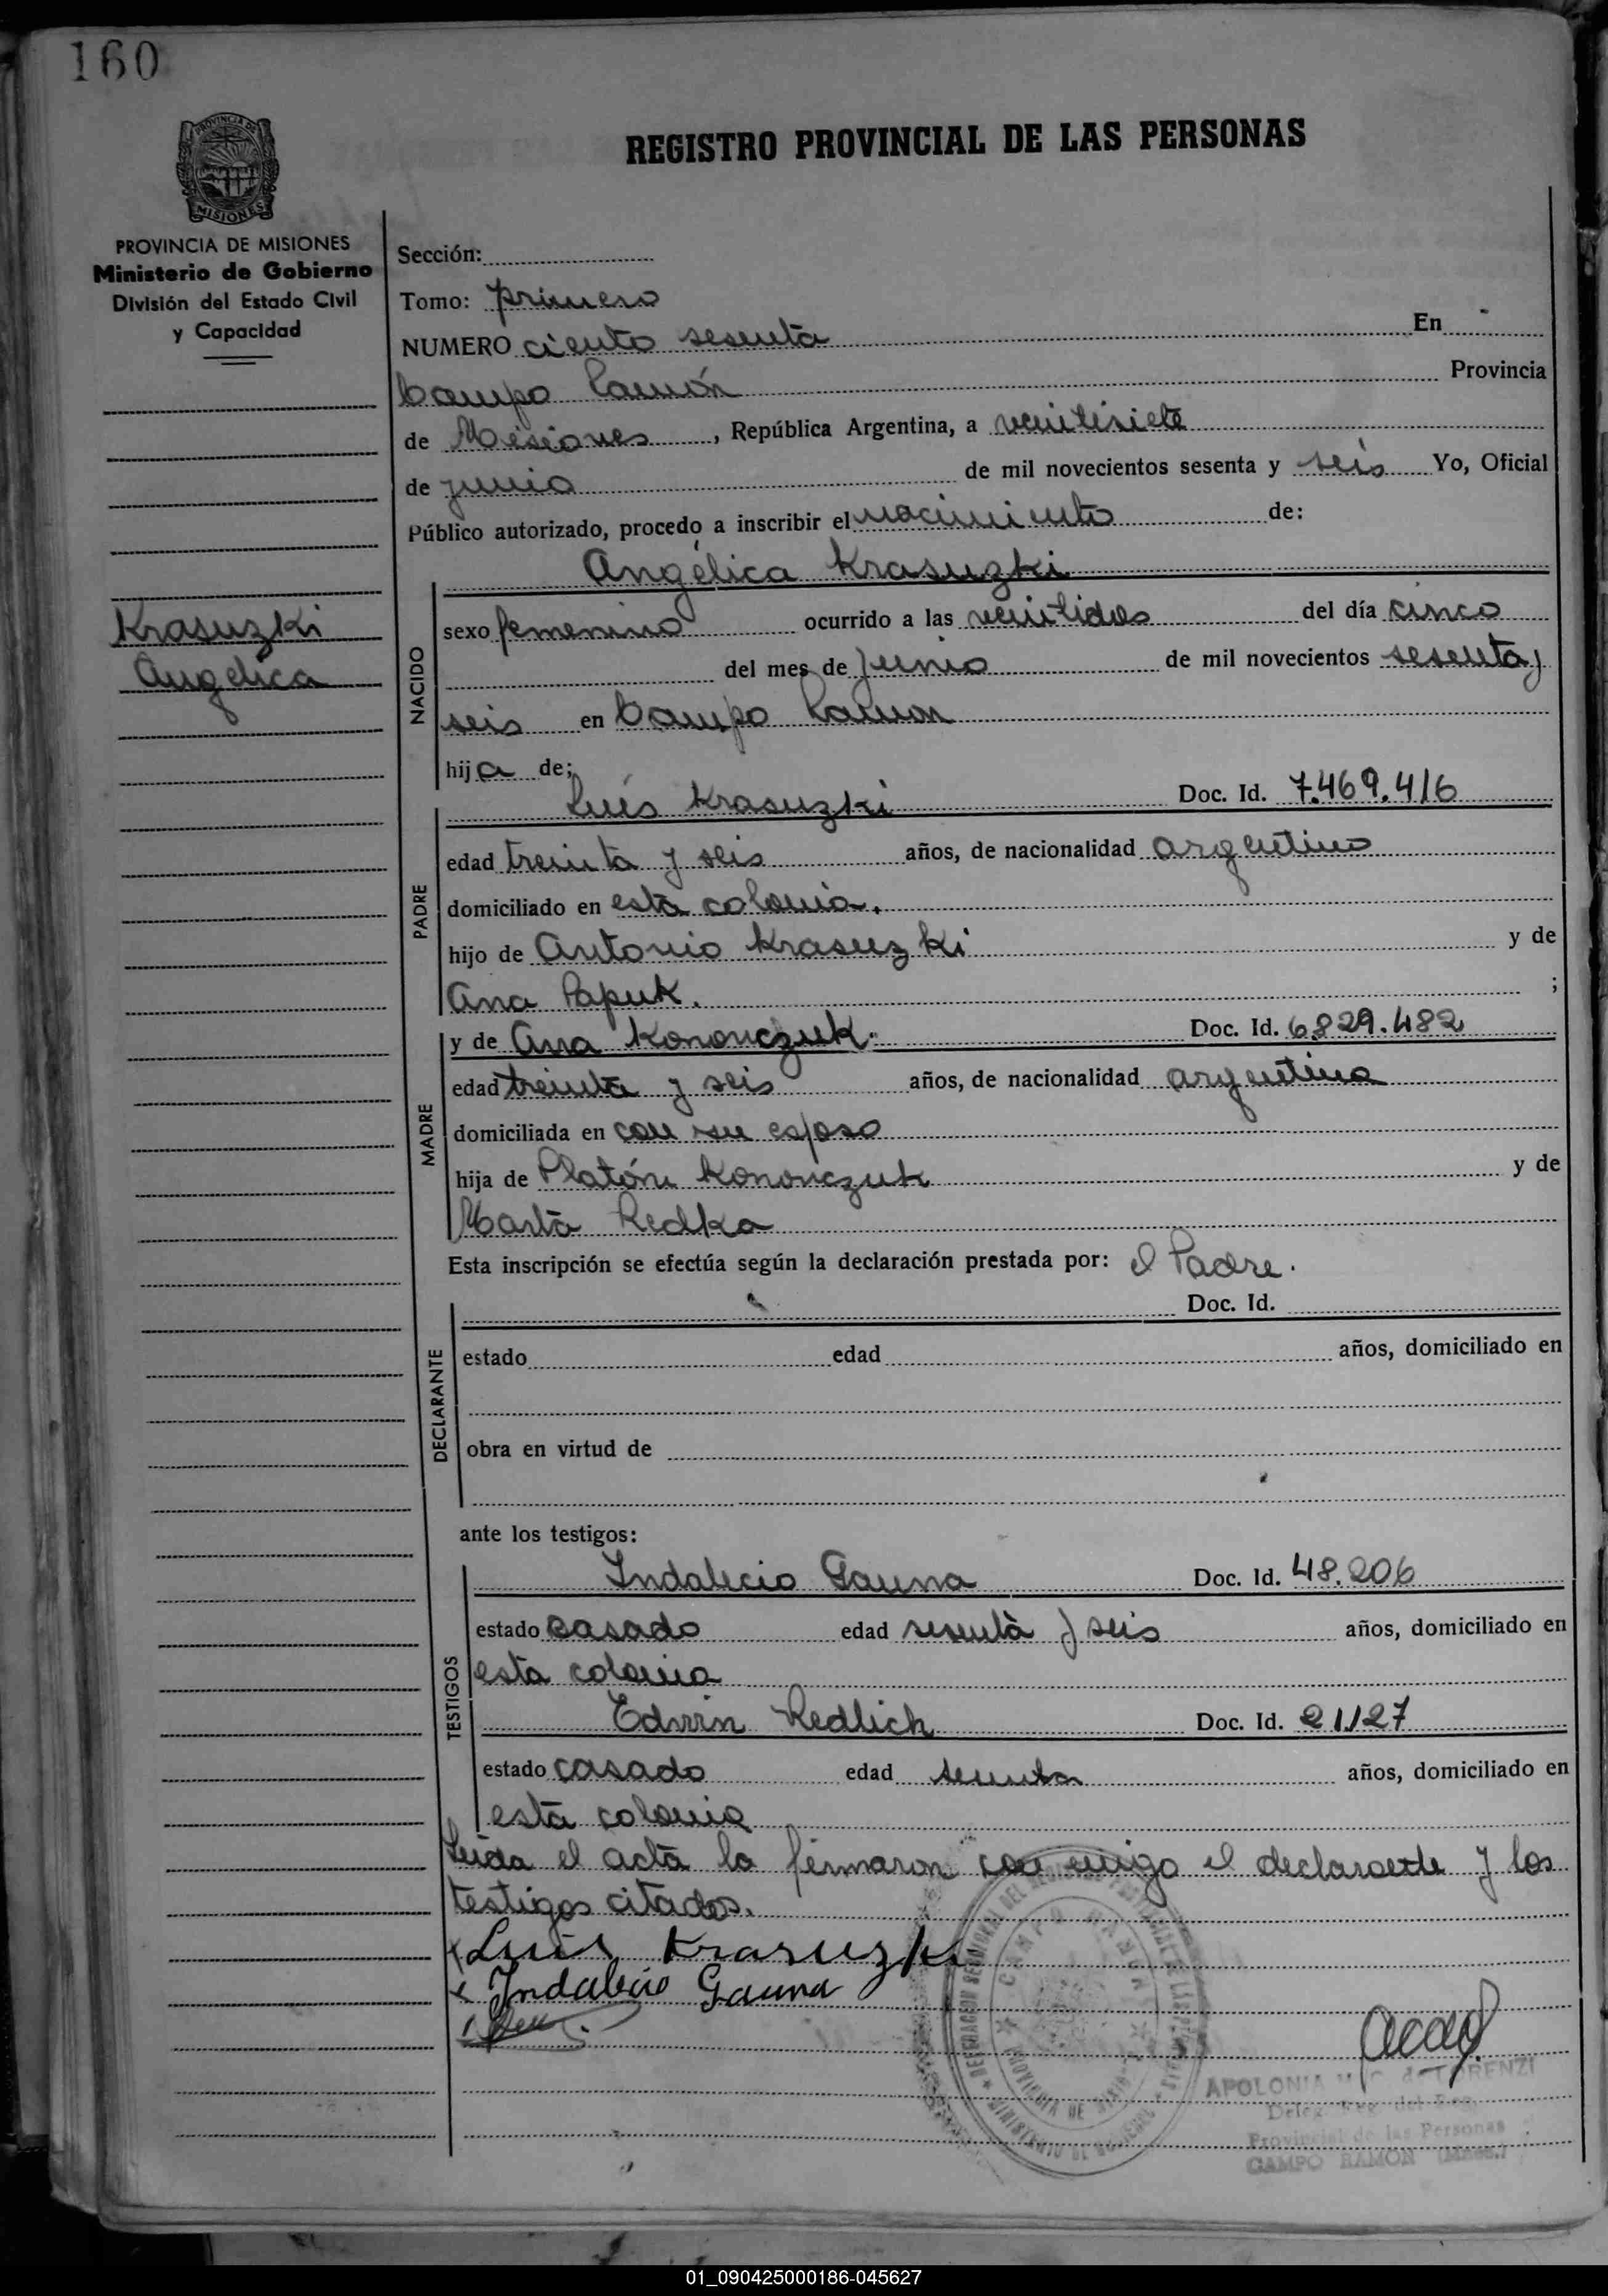 160
PROVINCIA DE
MISIONES
REGISTRO PROVINCIAL DE LAS PERSONAS
PROVINCIA DE MISIONES
Ministerio de Gobierno
División del Estado Civil
y Capacidad
Krasuzki
Angelica
Sección:
Tomo: primero
NUMERO ciento sesenta En
Campo Ramón Provincia
de Misiones, República Argentina, a veintisiete
de junio de mil novecientos sesenta y seis Yo, Oficial
Público autorizado, procedo a inscribir el nacimiento de:
Angélica Krasuzki
NACIDO
sexo femenino ocurrido a las veintidos del día cinco
del mes de junio de mil novecientos sesenta y
seis en Campo Ramon
hija de;
PADRE
Luis Krasuzki Doc. Id. 7.469.416
edad treinta y seis años, de nacionalidad argentino
domiciliado en esta colonia.
hijo de Antonio Krasuzki y de
Ana Papuk. ;
MADRE
y de Ana Kononczuk. Doc. Id. 6.829.482
edad treinta y seis años, de nacionalidad argentina
domiciliada en con su esposo
hija de Platón Kononczuk y de
Marta Redka
Esta inscripción se efectúa según la declaración prestada por: el Padre.
DECLARANTE
Doc. Id.
estado edad años, domiciliado en
obra en virtud de
ante los testigos:
TESTIGOS
Indalecio Gauna Doc. Id. 48.206
estado casado edad sesenta y seis años, domiciliado en
esta colonia
Edwin Redlich Doc. Id. 21.127
estado casado edad años, domiciliado en
esta colonia
Leida el acta la firmaron con migo el declarante y los
testigos citados.
Luis Krasuzki
Indalecio Gauna
CAMPO RAMON
PROVINCIA DE MISIONES
MINISTERIO DE GOBIERNO
APOLONIA de LORENZI
Deleg. Reg. del
Provincial de las Personas
CAMPO RAMON (Mnes.)
01_090425000186-045627